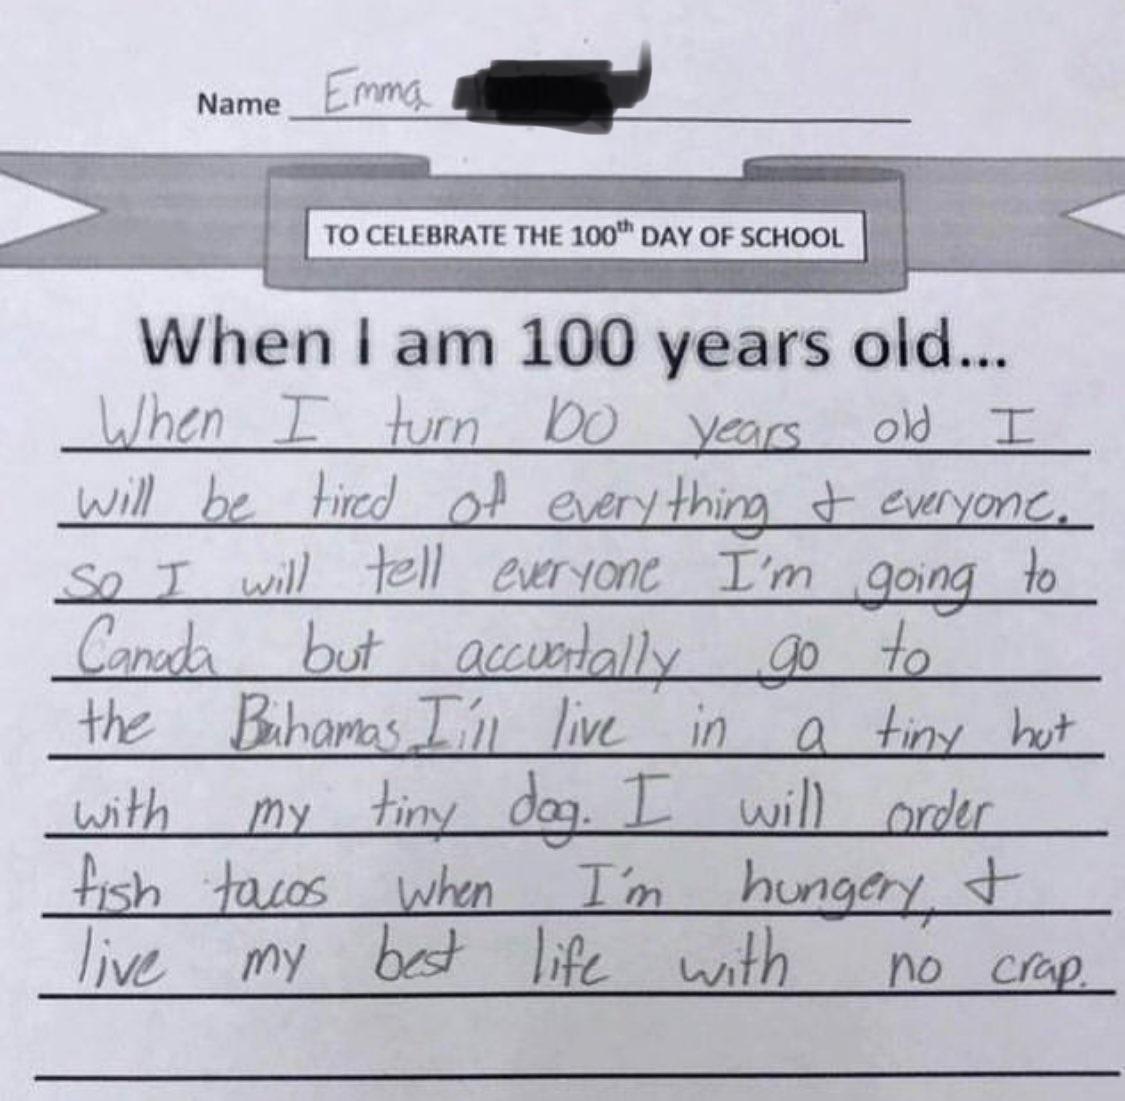 Name Emma
TO CELEBRATE THE 100th DAY OF SCHOOL
When I am 100 years old...
When I turn 100 years old I
will be tired of everything & everyone.
so I will tell everyone I'm going to
Canada but accuatally go to
the Bahamas, I'ill live in a tiny hut
with my tiny dog. I will order
fish tacos when I'm hungery, &
live my best life with no crap.